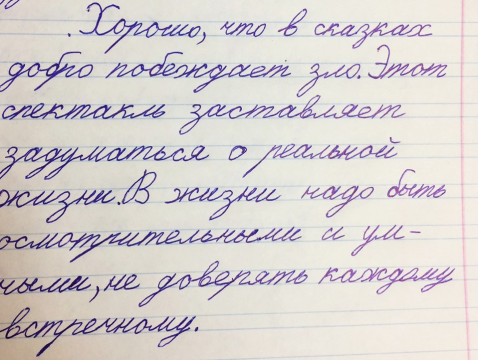 . Хорошо, что в сказках
добро побеждает зло. Этот
спектакль заставляет
задуматься о реальной
жизни. В жизни надо быть
осмотрительными и ум-
ными, не доверять каждому
встречному.